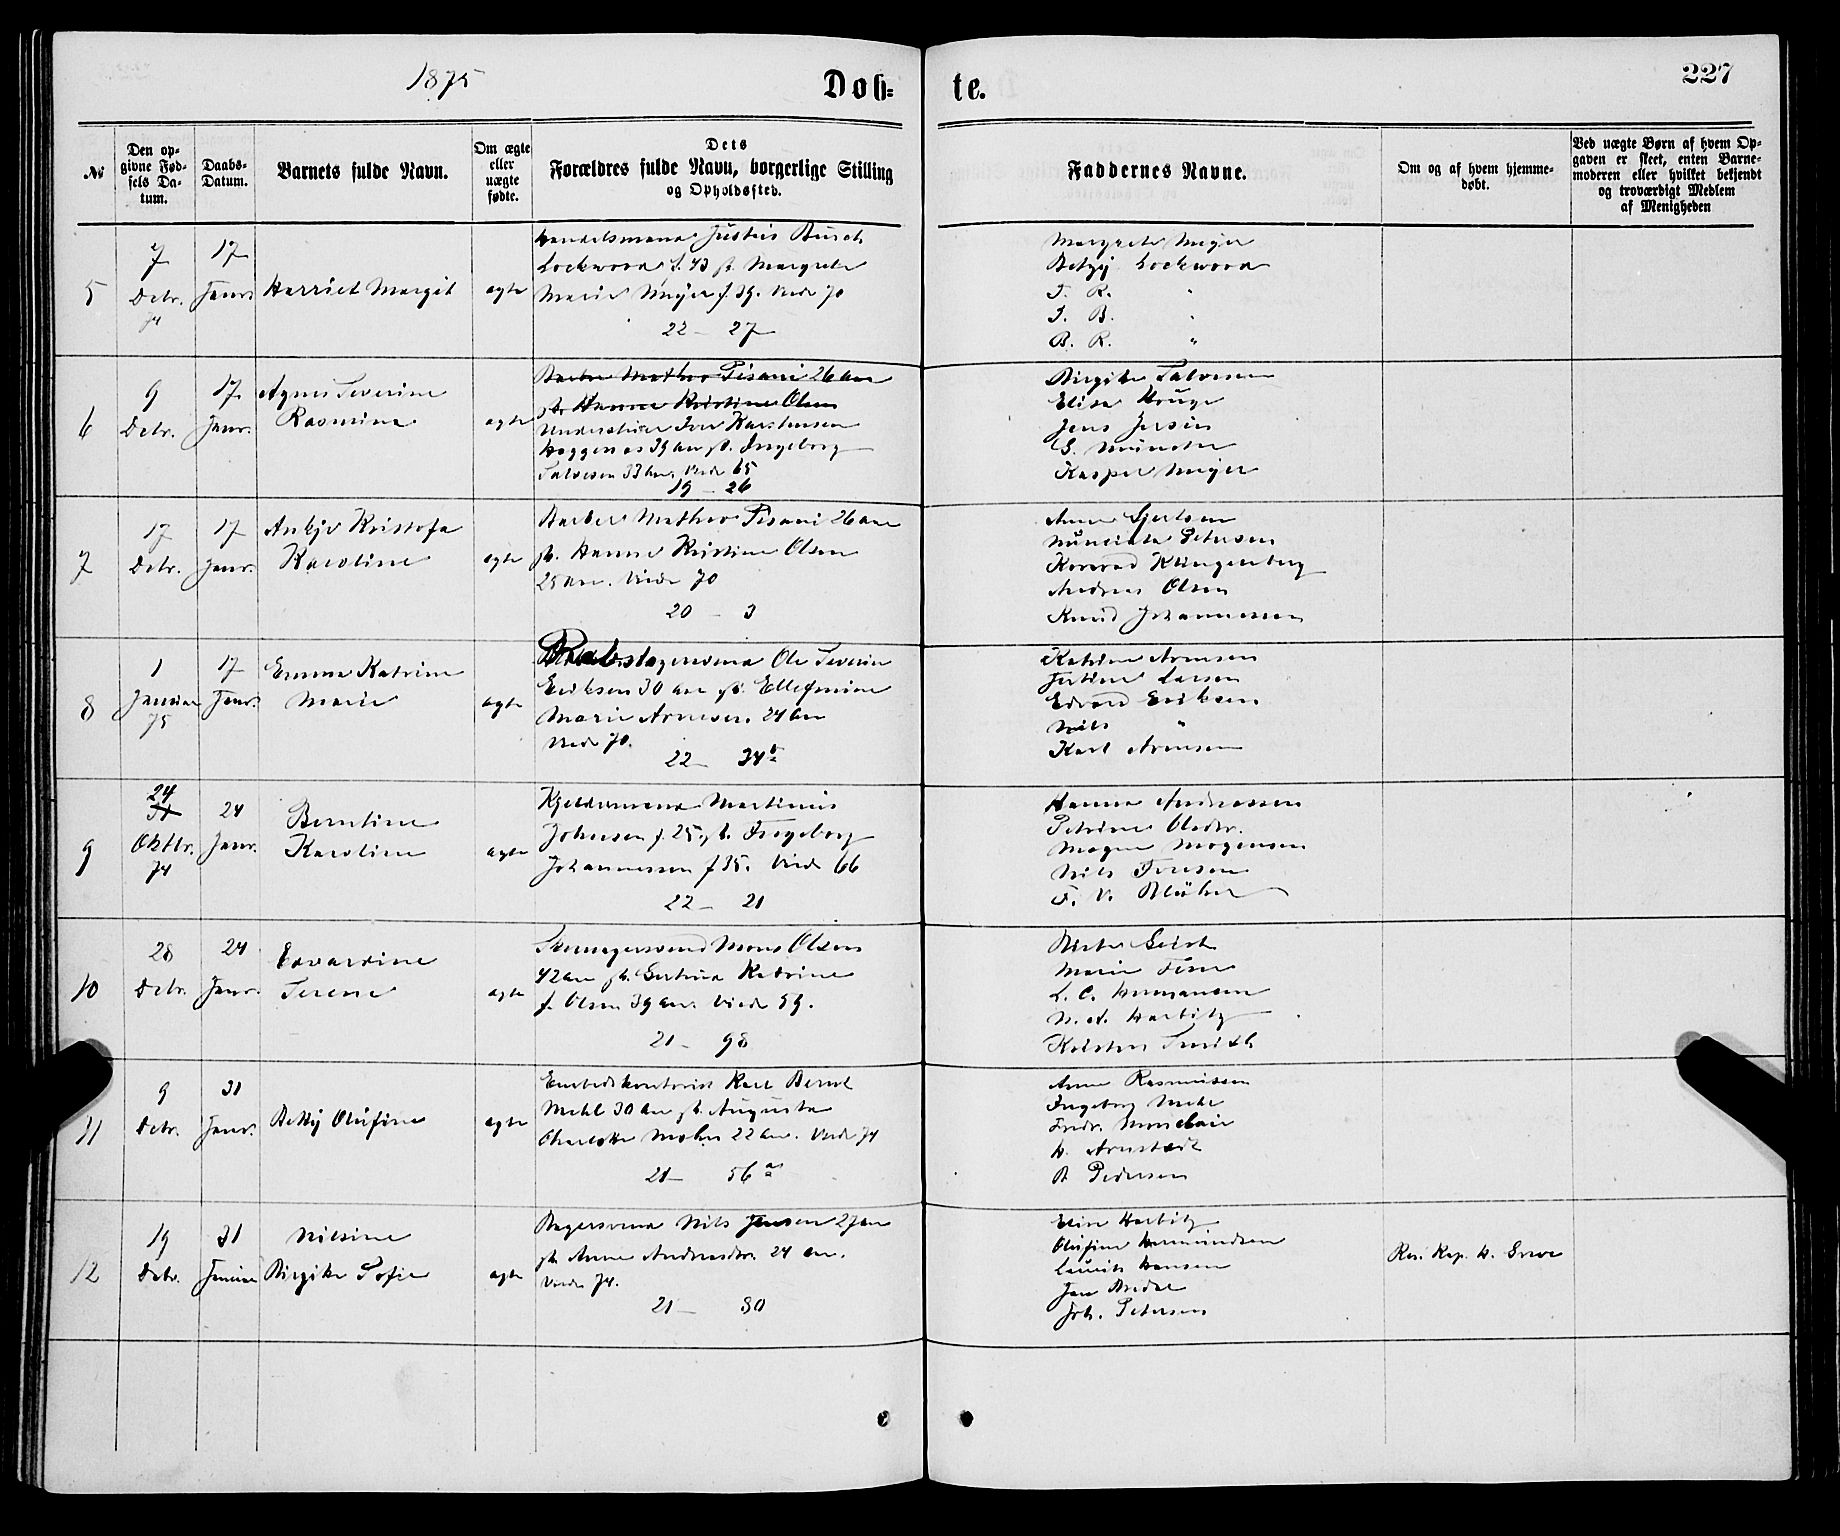 1875
Døb=
te.
227
№
Den op-
givne Fød-
sels Da-
tum.
Daabs-
Datum.
Barnets fulde Navn.
Om ægte
eller
uægte
fødte.
Dets
Forældres fulde Navn, borgerlige Stilling
og Opholdssted.
Faddernes Navne.
Om og af hvem hjemme-
døbt.
Ved uægte Børn af hvem Op-
gaven er skeet, enten Barne-
moderen eller hvilket bekjendt
og troværdigt Medlem
af Menigheden
5
7
Debr.
74
17
Janr.
Harriet Margit
ægte
Handelsmand Justus Busch
Lockwood f. 43 gt. Margrete
Marie Meyer f. 39. Viede 70
22 - 27
Margrete Meyer
Betzy Lockwood
T. R. "
J. B. "
B. R. "
6
9
Debr.
17
Janr.
Agnes Severine
Rasmine
ægte
Barber Matheo Pisani 26 Aar
gt. Hanne Kristine Olsen
Iver Karstensen
39 Aar gt. Ingeborg
Salvesen 33 Aar. Viede 65
19 - 26
Birgitte Salvesen
Elisa Houge
Jens Jersin
G. Münster
Kasper Meyer
7
17
Debr.
17
Janr.
Kristofa
Karoline
ægte
Barber Matheo Pisani 26 Aar
gt. Hanne Kristine Olsen
25 Aar. Viede 70
20 - 3
Anna Gjertsen
Petersen
Konrad Klingenberg
Andreas Olsen
Knud Johannessen
8
1
Januar
75
17
Janr.
Emma Katrine
Marie
ægte
Rebslagersvend Ole Severin
Eriksen 30 Aar gt. Ellefmine
Marie Arnesen 24 Aar
Viede 70.
22 - 34 b
Katrine Arnesen
Larsen
Edvard Eriksen
Nils "
Karl Arnesen
9
24
31
Oktbr.
74
24
Janr.
Berntine
Karoline
ægte
Kjeldermand Martinus
Johnsen f. 25. gt. Ingeborg
Johannessen f 35. Viede 66
22 - 21
Hanna Andreassen
Petrine Olsdtr.
Magne Mogensen
Nils Iversen
F. V. Blücher
10
28
Debr.
24
Janr.
Edvardine
Serene
ægte
Mons Olsen
42 Aar gt. Gertrud Katrine
f. Olsen 39 Aar. Viede 59.
21 - 98
Marie
L. C. Hermansen
N. A. Harbitz
Kristen Smith
11
9
Debr.
31
Janr.
Betty Olufine
ægte
Karl Bernt
Mehl 30 Aar gt. Augusta
Charlotte 22 Aar. Viede 74
21 - 56 a
Anna Rasmussen
Ingeborg Mehl
Fredr.
H. Arnstedt
B Pedersen
12
19
Debr.
31
Januar
Nilsine
Birgitte Sofie
ægte
Bagersvend Nils Jensen 27 Aar
gt. Anne Andreasdtr. 24 Aar.
Viede 74.
21 - 80
Elise Harbitz
Olufine Hermundsen
Laurits Hansen
Jan
Joh. Petersen
Res. Kap. H. Greve